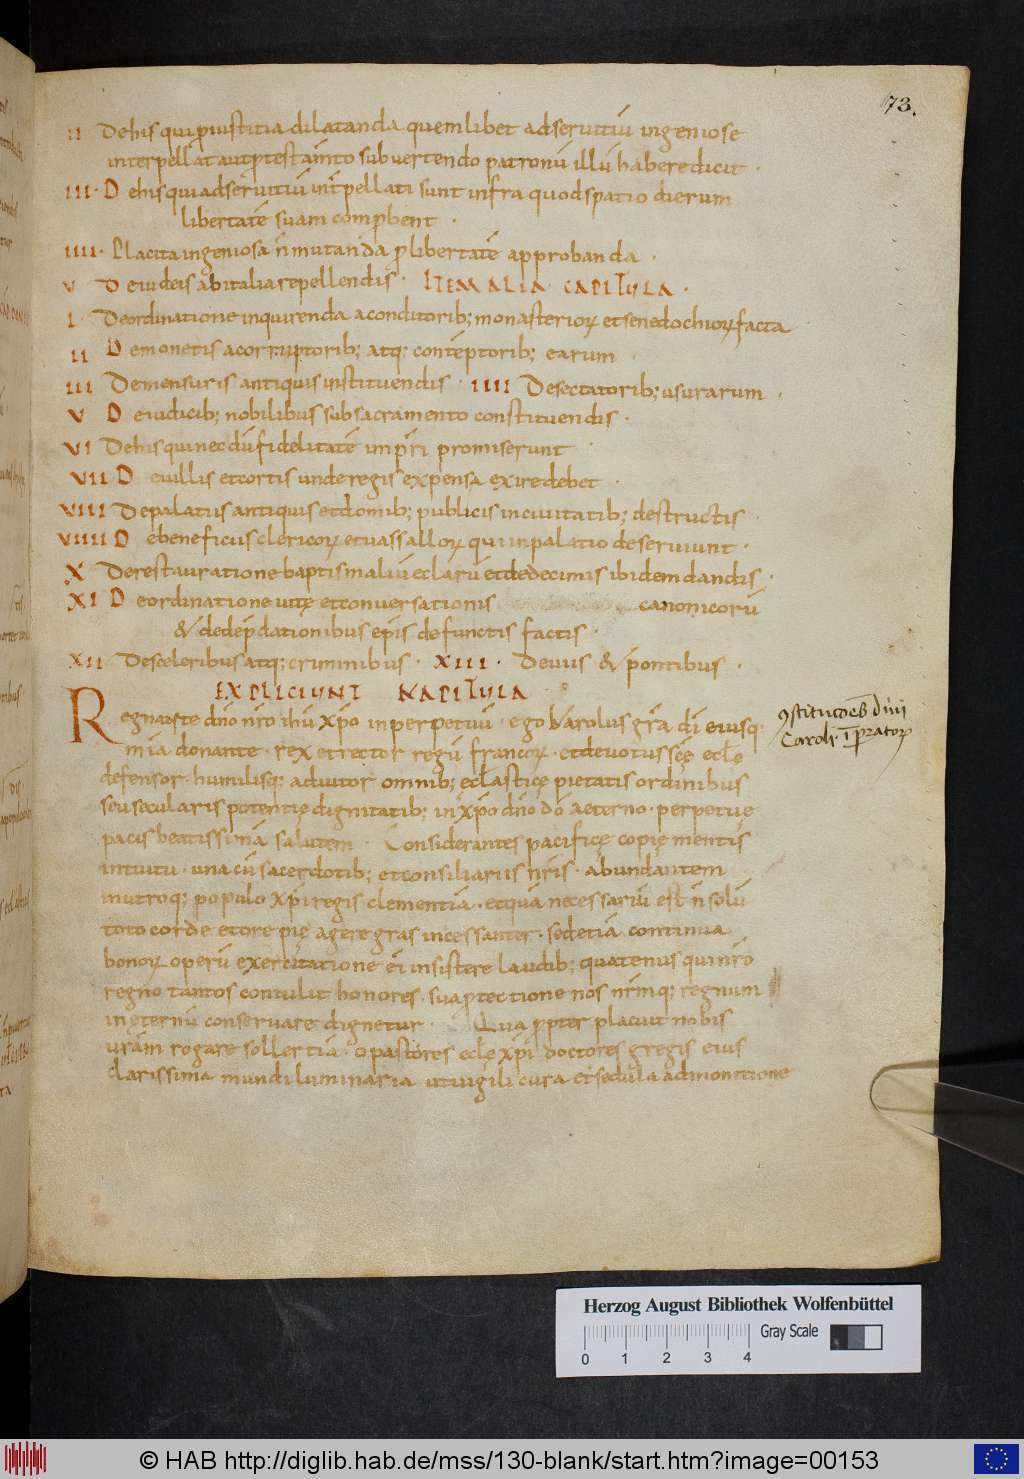 73.
II De his qui p iustitia dilatanda quemlibet ad servitiū ingeniose
interpellat aut p testam̄to subvertendo patronū illū habere dicit ·
III · De his qui ad servitiū int̄pellati sunt infra quod spatio dierum
libertatē suam comp̄bent ·
IIII · Placita ingeniosa n̄ mutanda p libertatē approbanda ·
V De iudeis ab italia repellendis · ITEM ALIA CAPITULA ·
I · De ordinatione inquirenda a conditorib; monasterioꝝ et senedochioꝝ facta
II De monetis a corruptorib; atq; contēptorib; earum ·
III De mensuris antiquis instituendis · IIII De sectatorib; usurarum ·
V De iudicib; nobilibus sub sacramento constituendis ·
VI De his qui necdū fidelitatē imp̄ri promiserunt ·
VII De villis et cortis unde regis expensa exire debet ·
VIII De palatiis antiquis et domib; publicis in civitatib; destructis ·
VIIII De beneficiis clericoꝝ et vassalloꝝ qui in palatio deserviunt ·
X De restauratione baptismaliū eclarū et de decimis ibidem dandis ·
XI De ordinatione vitę et conversationis canonicorū
& de dep̄dationibus ep̄is defunctis factis ·
XII De sceleribus atq; criminibus · XIII · De viis & pontibus ·
EXPLICIUNT KAPITULA
Regnante dn̄o nr̄o ihū xp̄o in perpetuū · ego karolus gr̄a dī eiusq;
mīa donante · rex et rector regū francoꝝ · et devotus sc̄ę ecl̄ę
defensor · humilisq; adiutor omnib; ecl̄asticę pietatis ordinibus
seu secularis potentię dignitatib; in xp̄o dn̄o dō aeterno · perpetuę
pacis beatissimā salutem · Considerantes pacificę copię mentis
intuitu · una cū sacerdotib; et consiliariis nr̄is · abundantem
in utroq; populo xp̄i regis clementiā · et quā necessariū est n̄ solū
toto corde et ore pię agere gr̄as incessanter · sed etiā continua
bonoꝝ operū exercitatione ei insistere laudib; quatenus qui nr̄o
regno tantos contulit honores · sua p̄tectione nos nr̄mq; regnum
in ęternū conservare dignetur · Quap̄pter placuit nobis
vr̄am rogare sollertiā · o pastores ecl̄ę xp̄i doctores gregis eius
clarissima mundi luminaria ut vigili cura et sedula admonitione
ꝯstitucōes Divi
Caroli Imp̄ratoꝝ
Herzog August Bibliothek Wolfenbüttel
Gray Scale
0 1 2 3 4
© HAB http://diglib.hab.de/mss/130-blank/start.htm?image=00153